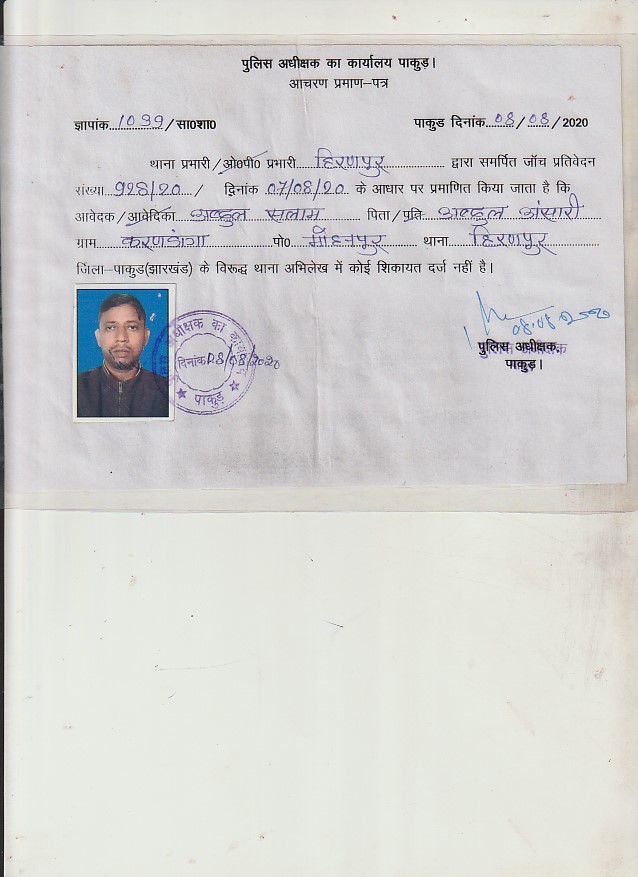 पुलिस अधीक्षक का कार्यालय पाकुड़।
आचरण प्रमाण–पत्र
ज्ञापांक 1099/सा0शा0 पाकुड दिनांक 08/08/2020
थाना प्रभारी/ओ0पी0 प्रभारी हिरणपुर द्वारा समर्पित जॉच प्रतिवेदन
संख्या 928/20 / दिनांक 07/08/20 के आधार पर प्रमाणित किया जाता है कि
आवेदक/आवेदिका अब्दुल सलाम पिता/पति अब्दुल अंसारी
ग्राम करणडांगा पो0 मोहनपुर थाना हिरणपुर
जिला–पाकुड़(झारखंड) के विरूद्ध थाना अभिलेख में कोई शिकायत दर्ज नहीं है।
अधीक्षक का कार्यालय
दिनांक 08/08/2020
पाकुड़
08.08.2020
पुलिस अधीक्षक,
पाकुड़।